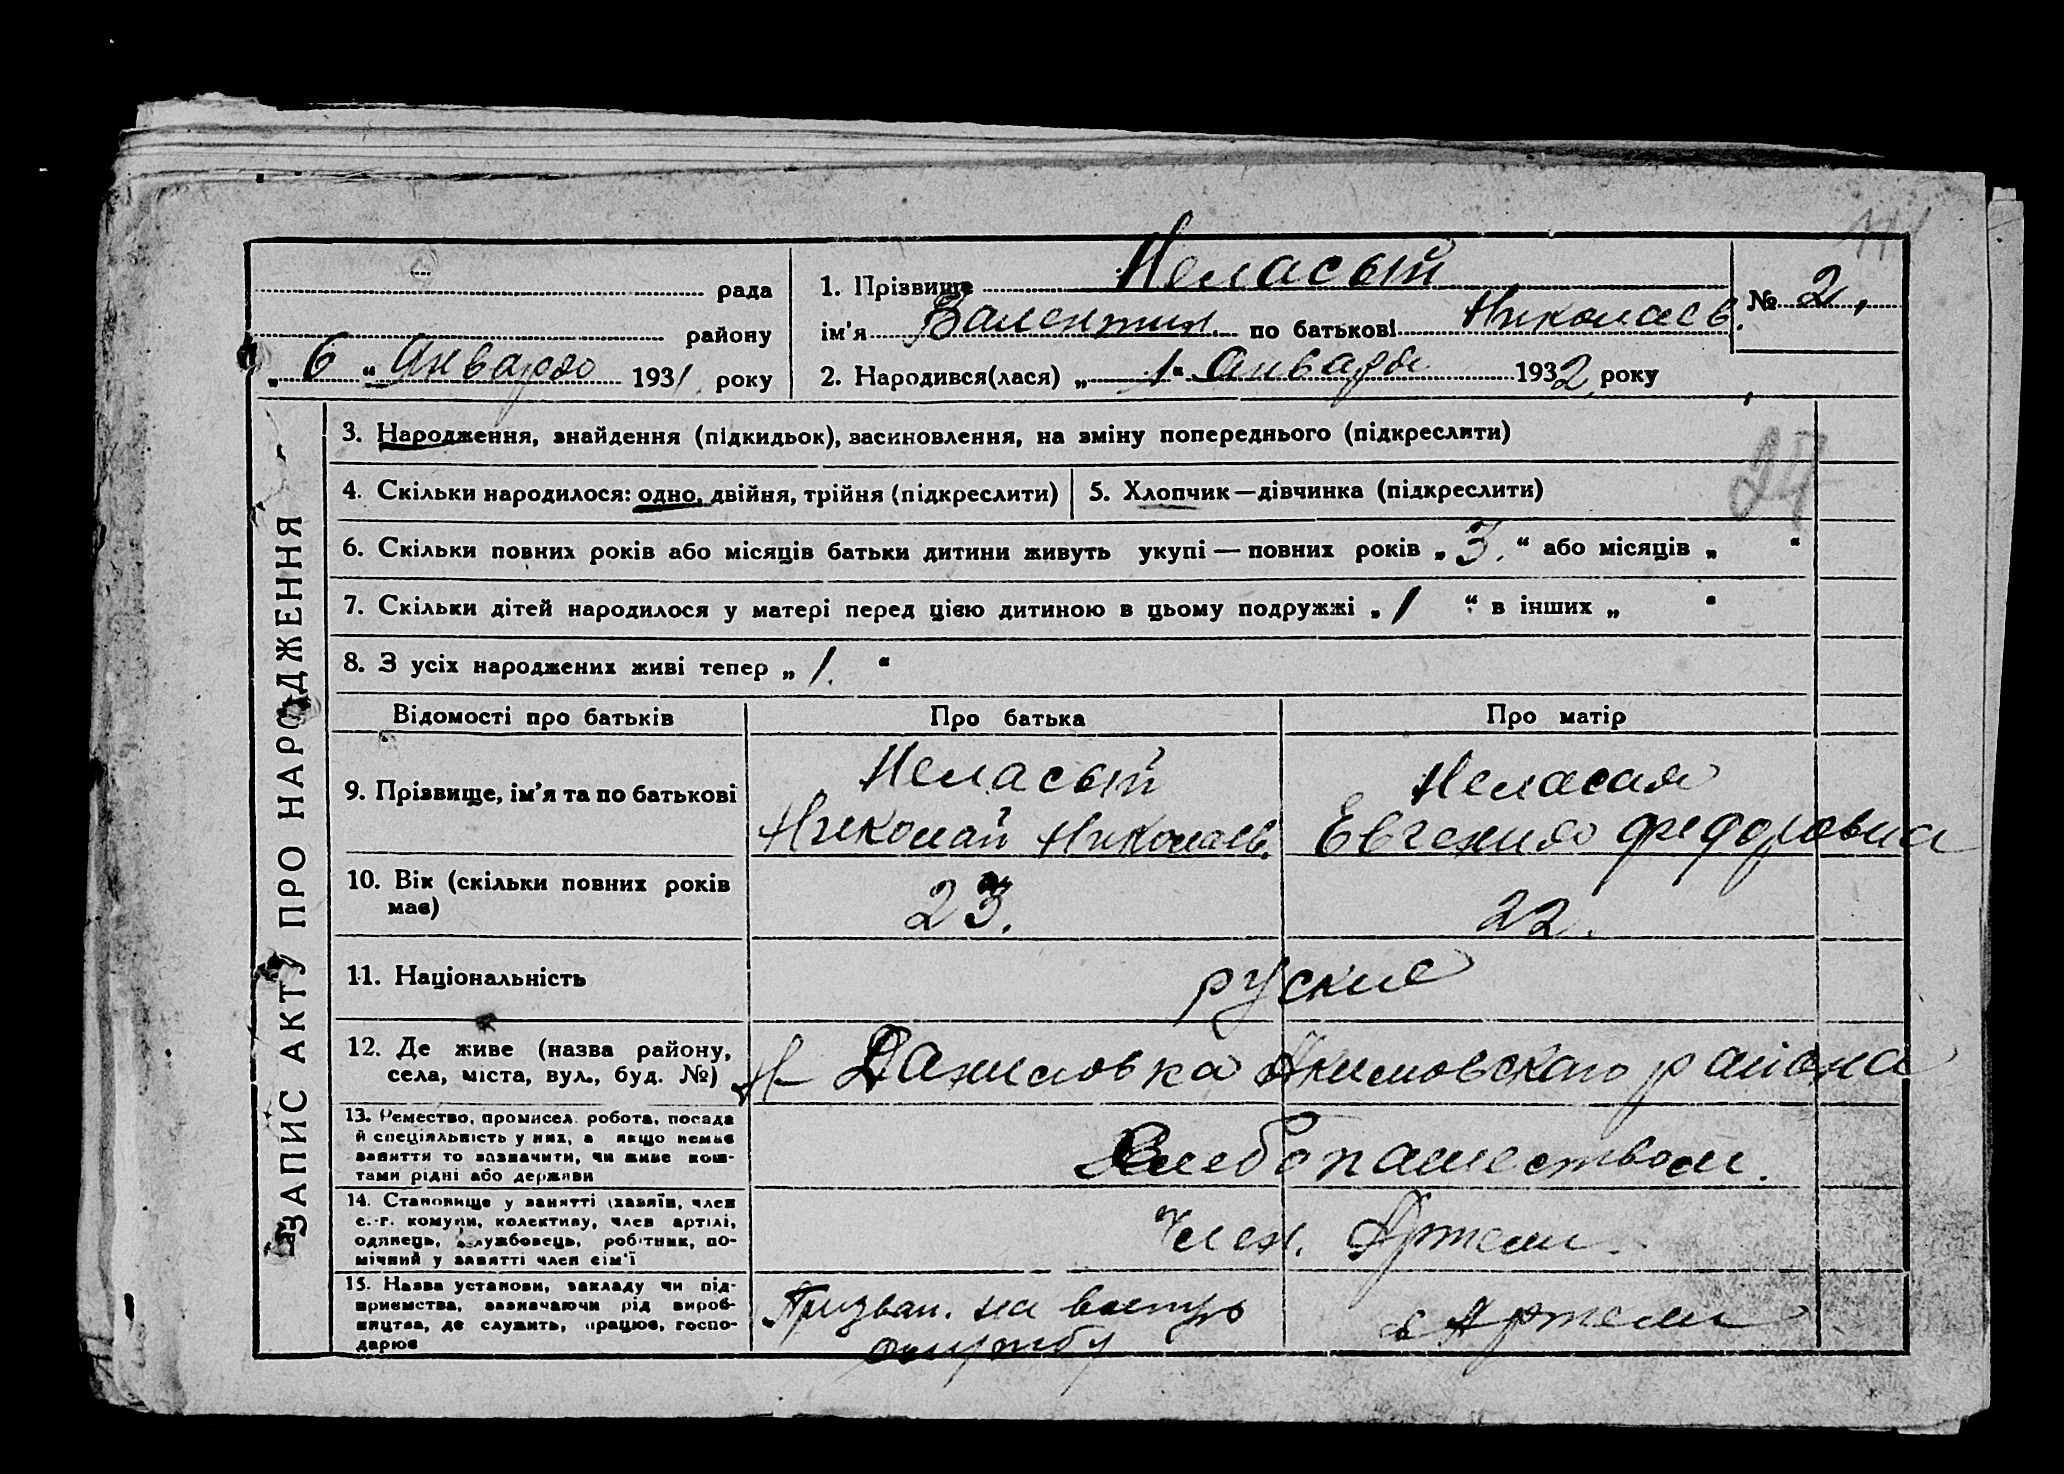 рада
району
„ 6 “ Января 1931 року
1. Прізвище Неласый
ім’я Валентин. по батькові Николаев.
№ 2,
2. Народився(лася) „ 1 “ Января 1932 року
ЗАПИС АКТУ ПРО НАРОДЖЕННЯ
3. Народження, знайдення (підкидьок), засиновлення, на зміну попереднього (підкреслити)
4. Скільки народилося: одно, двійня, трійня (підкреслити)
5. Хлопчик—дівчинка (підкреслити)
6. Скільки повних років або місяців батьки дитини живуть укупі — повних років „ 3. “ або місяців „ “
7. Скільки дітей народилося у матері перед цією дитиною в цьому подружжі „ 1 “ в інших „ “
8. З усіх народжених живі тепер „ 1. “
Відомості про батьків
Про батька
Про матір
9. Прізвище, ім’я та по батькові
Неласый
Николай Николаев.
Неласая
Евгения Федоровна
10. Вік (скільки повних років
має)
23.
22.
11. Національність
руские
12. Де живе (назва району,
села, міста, вул., буд. №)
Н-Даниловка Акимовского района
13. Ремество, промисел, робота, посада
й спеціяльність у них, а якщо немає
заняття то зазначити, чи живе кош-
тами рідні або держави
Хлебопашеством.
14. Становище у занятті (хазяїн, член
с.-г. комуни, колективу, член артілі,
одинець, службовець, робітник, по-
мічний у занятті член сім’ї
Член. Артели.
15. Назва установи, закладу чи під-
приємства, зазначаючи рід вироб-
ництва, де служить, працює, госпо-
дарює
Призван. на
службу
в Артели